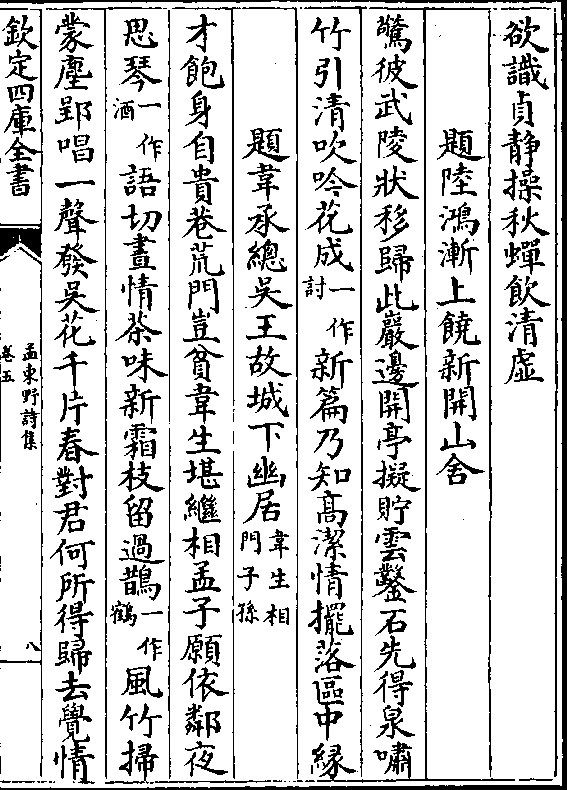 欲識貞静操秋蟬飲清虛
題陸鴻漸上饒新開山舍
驚彼武陵狀移歸此巖邊開亭擬貯雲鑿石先得泉嘯
竹引清吹吟花成一作討新篇乃知高潔情擺落區中緣
題韋承總吳王故城下幽居韋生相門子孫
才飽身自貴巷荒門豈貧韋生堪繼相孟子願依鄰夜
思琴一作酒語切晝情茶味新霜枝留過鵲一作鶴風竹掃
蒙塵郢唱一聲發吳花千片春對君何所得歸去覺情
欽定四庫全書
孟東野詩集
卷五
八